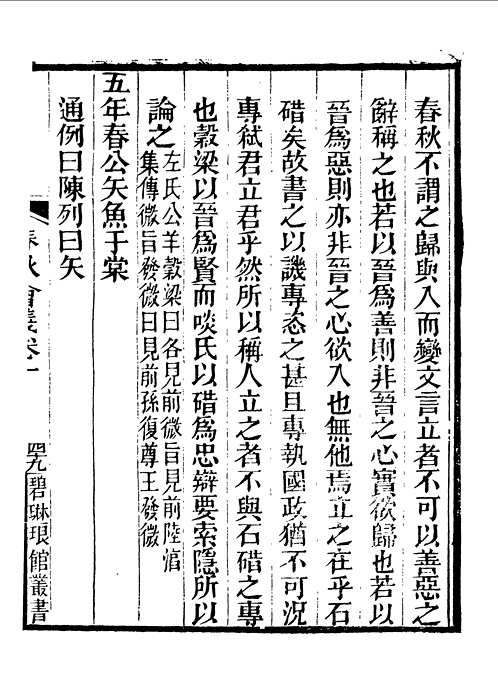 春秋不謂之歸與入而變文言立者不可以善惡之
辭稱之也若以晉爲善則非晉之心實欲歸也若以
晉爲惡則亦非晉之心欲入也無他焉立之在乎石
碏矣故書之以譏專恣之甚且專執國政猶不可況
專弑君立君乎然所以稱人立之者不與石碏之專
也穀梁以晉爲賢而啖氏以碏爲忠辯要索隱所以
論之左氏公羊穀梁曰各見前微旨見前陸淳
集傳微旨發微曰見前孫復尊王發微
五年春公矢魚于棠
通例曰陳列曰矢
春秋會義卷一
四九碧琳琅館叢書